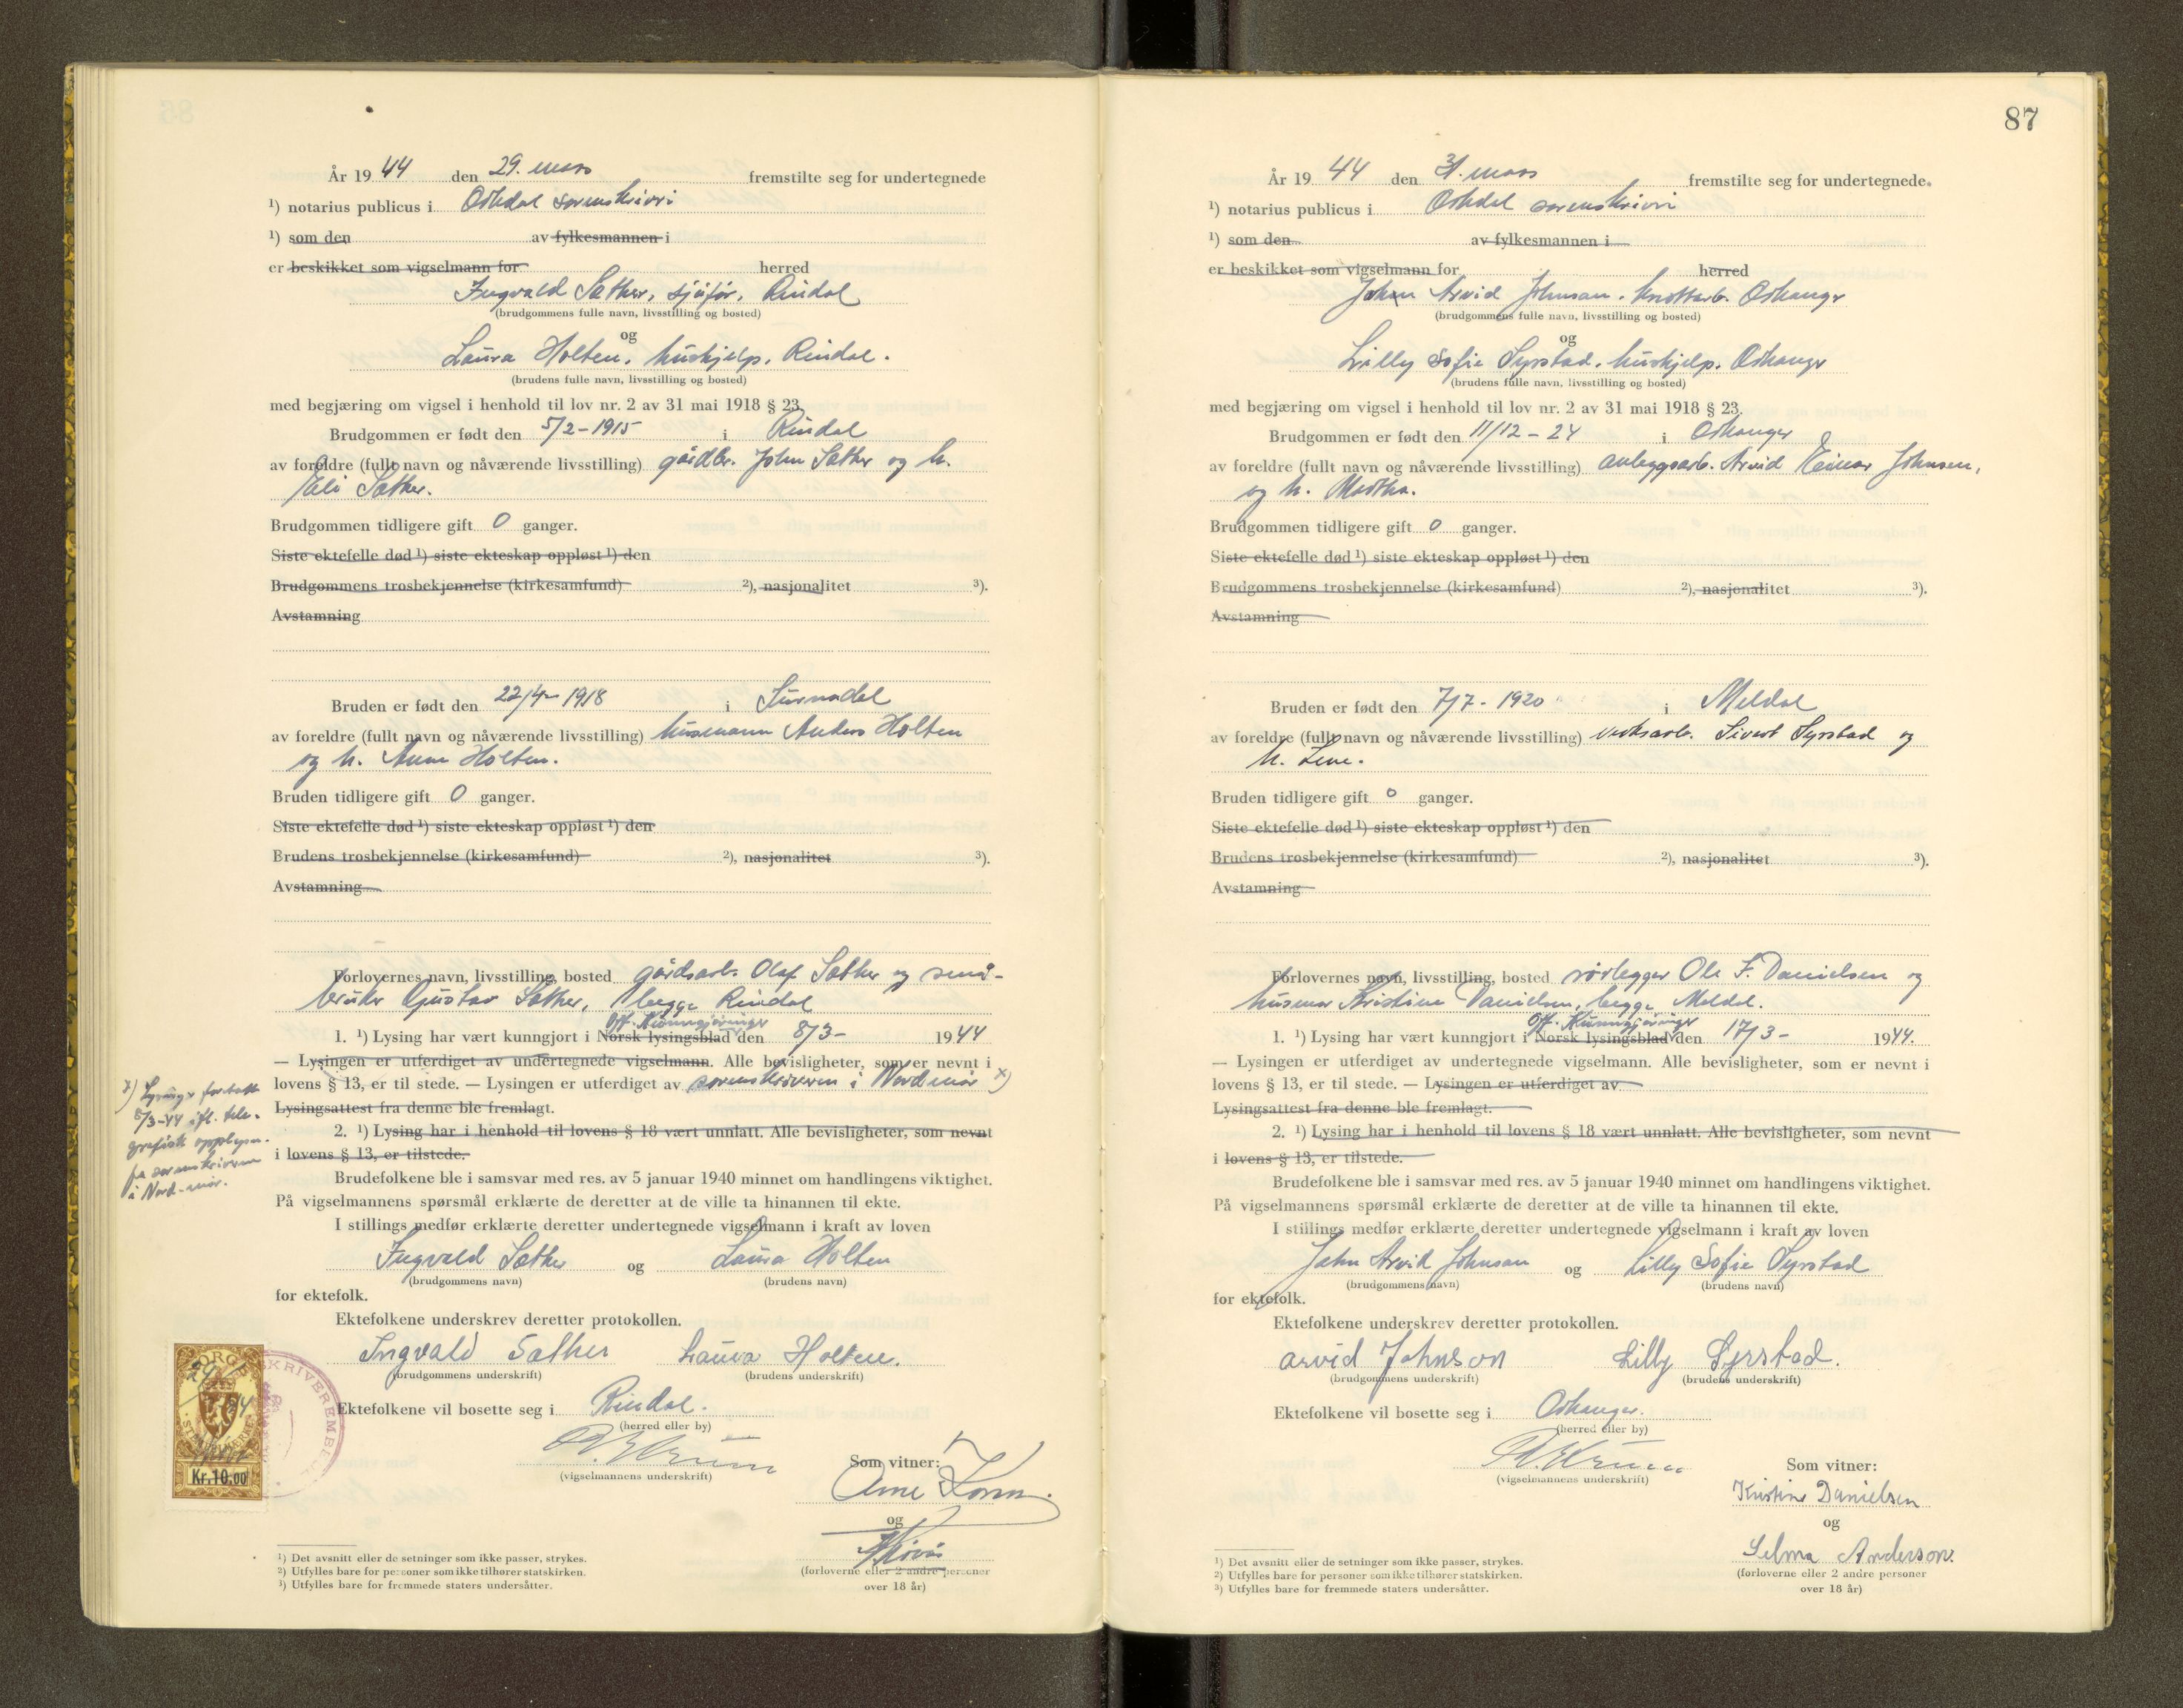 År 19 44 den 29. mars fremstilte seg for undertegnede
¹) notarius publicus i Orkdal sorenskriveri
¹) som den av fylkesmannen i
er beskikket som vigselmann for herred
Ingvald Sæther, sjåfør, Rindal
(brudgommens fulle navn, livsstilling og bosted)
og
Laura Holten, hushjelp, Rindal.
(brudens fulle navn, livsstilling og bosted)
med begjæring om vigsel i henhold til lov nr. 2 av 31 mai 1918 § 23.
Brudgommen er født den 5/2-1915 i Rindal
av foreldre (fullt navn og nåværende livsstilling) gårdbr. John Sæther og h.
Eli Sæther.
Brudgommen tidligere gift 0 ganger.
Siste ektefelle død ¹) siste ekteskap oppløst ¹) den
Brudgommens trosbekjennelse (kirkesamfund) ²), nasjonalitet ³).
Avstamning
Bruden er født den 22/4-1918 i Surnadal
av foreldre (fullt navn og nåværende livsstilling) husmann Anders Holten
og h. Anne Holten.
Bruden tidligere gift 0 ganger.
Siste ektefelle død ¹) siste ekteskap oppløst ¹) den
Brudens trosbekjennelse (kirkesamfund) ²), nasjonalitet ³).
Avstamning
Forlovernes navn, livsstilling, bosted gårdsarb. Olaf Sæther og små-
bruker Gustav Sæther, begge Rindal
Off. Kunngjøringer
1. ¹) Lysing har vært kunngjort i Norsk lysingsblad den 8/3- 1944
— Lysingen er utferdiget av undertegnede vigselmann. Alle bevisligheter, som er nevnt i
lovens § 13, er til stede. — Lysingen er utferdiget av sorenskriveren i Nordmør x)
Lysingsattest fra denne ble fremlagt.
2. ¹) Lysing har i henhold til lovens § 18 vært unnlatt. Alle bevisligheter, som nevnt
i lovens § 13, er tilstede.
x) Lysing foretatt
8/3-44 ifl. tele-
grafisk opplysn.
fra sorenskriveren
i Nord-mør.
Brudefolkene ble i samsvar med res. av 5 januar 1940 minnet om handlingens viktighet.
På vigselmannens spørsmål erklærte de deretter at de ville ta hinannen til ekte.
I stillings medfør erklærte deretter undertegnede vigselmann i kraft av loven
Ingvald Sæther og Laura Holten
(brudgommens navn) (brudens navn)
for ektefolk.
Ektefolkene underskrev deretter protokollen.
Ingvald Sæther Laura Holten.
(brudgommens underskrift) (brudens underskrift)
Ektefolkene vil bosette seg i Rindal.
(herred eller by)
(vigselmannens underskrift)
Som vitner:
Arne
og
(forloverne eller 2 andre personer
over 18 år)
NORGE
Kr. 10.00
¹) Det avsnitt eller de setninger som ikke passer, strykes.
²) Utfylles bare for personer som ikke tilhører statskirken.
³) Utfylles bare for fremmede staters undersåtter.
87
År 19 44 den 31. mars fremstilte seg for undertegnede.
¹) notarius publicus i Orkdal sorenskriveri
¹) som den av fylkesmannen i
er beskikket som vigselmann for herred
John Arvid Johnsen, Orkanger
(brudgommens fulle navn, livsstilling og bosted)
og
Lilly Sofie Syrstad, hushjelp, Orkanger
(brudens fulle navn, livsstilling og bosted)
med begjæring om vigsel i henhold til lov nr. 2 av 31 mai 1918 § 23.
Brudgommen er født den 11/12-24 i Orkanger
av foreldre (fullt navn og nåværende livsstilling) anleggsarb. Arvid Einar Johnsen,
og h. Martha.
Brudgommen tidligere gift 0 ganger.
Siste ektefelle død ¹) siste ekteskap oppløst ¹) den
Brudgommens trosbekjennelse (kirkesamfund) ²), nasjonalitet ³).
Avstamning
Bruden er født den 7/7-1920 i Meldal
av foreldre (fullt navn og nåværende livsstilling) verksarb. Sivert Syrstad og
h. Lene.
Bruden tidligere gift 0 ganger.
Siste ektefelle død ¹) siste ekteskap oppløst ¹) den
Brudens trosbekjennelse (kirkesamfund) ²), nasjonalitet ³).
Avstamning
Forlovernes navn, livsstilling, bosted rørlegger Ole F. Danielsen og
husmor Kristine Danielsen, begge Meldal.
Off. Kunngjøringer
1. ¹) Lysing har vært kunngjort i Norsk lysingsblad den 17/3- 1944.
— Lysingen er utferdiget av undertegnede vigselmann. Alle bevisligheter, som er nevnt i
lovens § 13, er til stede. — Lysingen er utferdiget av
Lysingsattest fra denne ble fremlagt.
2. ¹) Lysing har i henhold til lovens § 18 vært unnlatt. Alle bevisligheter, som nevnt
i lovens § 13, er tilstede.
Brudefolkene ble i samsvar med res. av 5 januar 1940 minnet om handlingens viktighet.
På vigselmannens spørsmål erklærte de deretter at de ville ta hinannen til ekte.
I stillings medfør erklærte deretter undertegnede vigselmann i kraft av loven
John Arvid Johnsen og Lilly Sofie Syrstad
(brudgommens navn) (brudens navn)
for ektefolk.
Ektefolkene underskrev deretter protokollen.
Arvid Johnson Lilly Syrstad.
(brudgommens underskrift) (brudens underskrift)
Ektefolkene vil bosette seg i Orkanger.
(herred eller by)
(vigselmannens underskrift)
Som vitner:
Kristine Danielsen
og
Selma Anderson.
(forloverne eller 2 andre personer
over 18 år)
¹) Det avsnitt eller de setninger som ikke passer, strykes.
²) Utfylles bare for personer som ikke tilhører statskirken.
³) Utfylles bare for fremmede staters undersåtter.